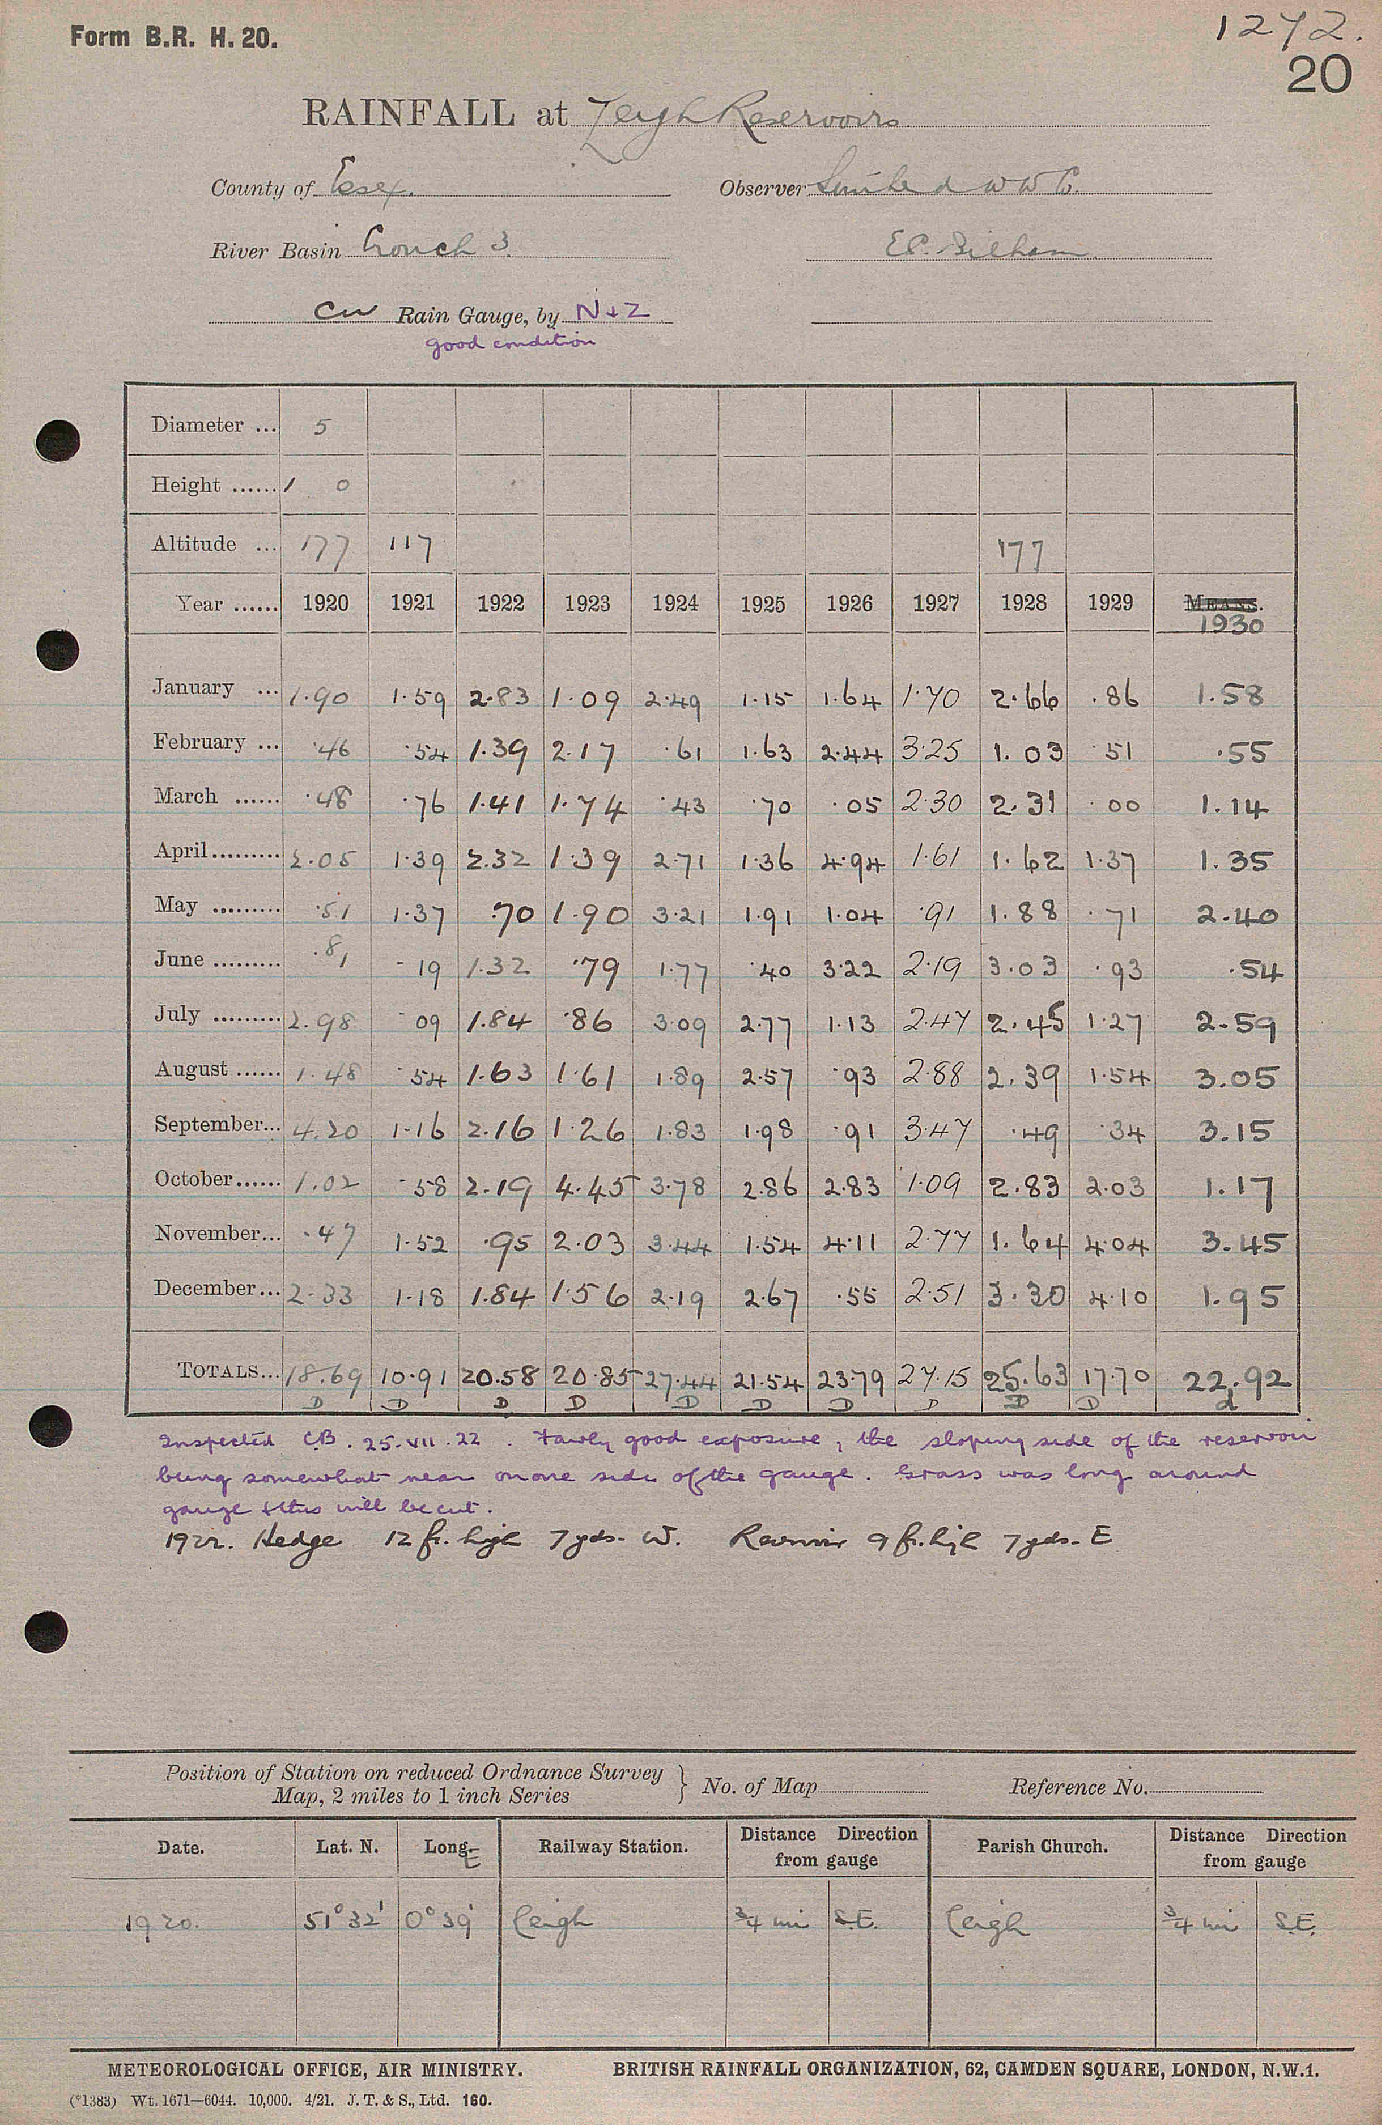 Form B.R. H. 20.
1272.
20
RAINFALL at Leigh Reservoirs
County of Essex. Observer Southend W W Co.
River Basin Crouch 3. E.C. Bilham
Cu Rain Gauge, by N + Z
good condition
Diameter ... 5
Height ...... 1 0
Altitude ... 177 117 177
Year ...... 1920 1921 1922 1923 1924 1925 1926 1927 1928 1929 MEANS. 1930
January ... 1.90 1.59 2.83 1.09 2.49 1.15 1.64 1.70 2.66 .86 1.58
February ... .46 .54 1.39 2.17 .61 1.63 2.44 3.25 1.03 .51 .55
March ...... .48 .76 1.41 1.74 .43 .70 .05 2.30 2.31 .00 1.14
April ......... 2.05 1.39 2.32 1.39 2.71 1.36 4.94 1.61 1.62 1.37 1.35
May ......... .51 1.37 .70 1.90 3.21 1.91 1.04 .91 1.88 .71 2.40
June ......... .81 .19 1.32 .79 1.77 .40 3.22 2.19 3.03 .93 .54
July ......... 2.98 .09 1.84 .86 3.09 2.77 1.13 2.47 2.45 1.27 2.59
August ...... 1.48 .54 1.63 1.61 1.89 2.57 .93 2.88 2.39 1.54 3.05
September... 4.20 1.16 2.16 1.26 1.83 1.98 .91 3.47 .49 .34 3.15
October...... 1.02 .58 2.19 4.45 3.78 2.86 2.83 1.09 2.83 2.03 1.17
November... .47 1.52 .95 2.03 3.44 1.54 4.11 2.77 1.64 4.04 3.45
December... 2.33 1.18 1.84 1.56 2.19 2.67 .55 2.51 3.30 4.10 1.95
TOTALS... 18.69 10.91 20.58 20.85 27.44 21.54 23.79 27.15 25.63 17.70 22.92
D D D D D D D D D D d
Inspected C.B. 25.VII.22. Fairly good exposure, the sloping side of the reservoir
being somewhat near on one side of the gauge. Grass was long around
gauge & this will be cut.
1922. Hedge 12 ft. high 7 yds. W. Reservoir 9 ft. high 7 yds. E
Position of Station on reduced Ordnance Survey
Map, 2 miles to 1 inch Series } No. of Map Reference No.
Date. Lat. N. Long. E Railway Station. Distance Direction from gauge Parish Church. Distance Direction from gauge
1920. 51° 32' 0° 39' Leigh 3/4 mi S.E. Leigh 3/4 mi S.E.
METEOROLOGICAL OFFICE, AIR MINISTRY. BRITISH RAINFALL ORGANIZATION, 62, CAMDEN SQUARE, LONDON, N.W.1.
(*1383) Wt. 1671—6044. 10,000. 4/21. J. T. & S., Ltd. 160.